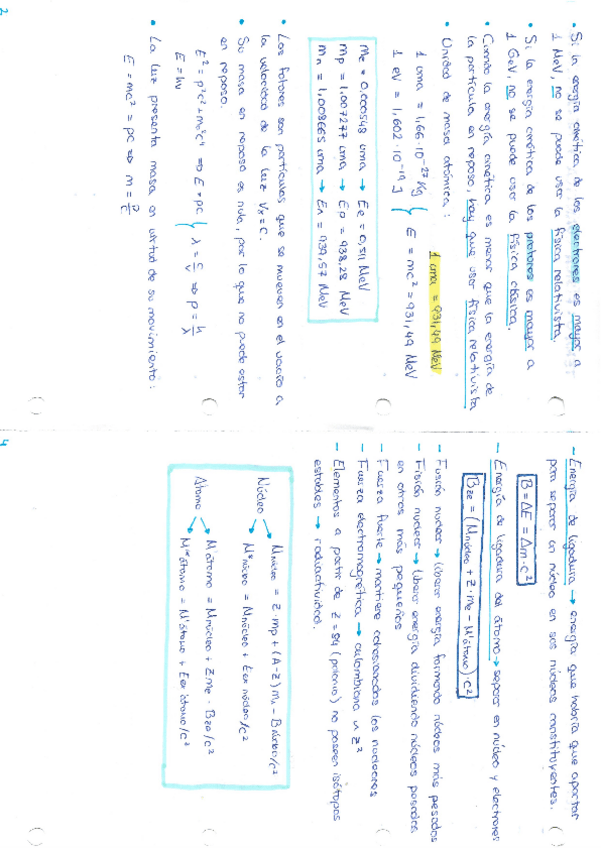 • Si la energía cinética de los electrones es mayor a
1 MeV, no se puede usar la física relativista.
• Si la energía cinética de los protones es mayor a
1 GeV, no se puede usar la física clásica.
• Cuando la energía cinética es menor que la energía de
la partícula en reposo, hay que usar física relativista
• Unidad de masa atómica:
1 uma = 931,49 MeV
1 uma = 1,66·10⁻²⁷ Kg
1 eV = 1,602·10⁻¹⁹ J } E = mc² = 931,49 MeV
me = 0,000548 uma → Ee = 0,511 MeV
mp = 1,007277 uma → Ep = 938,28 MeV
mn = 1,008665 uma → En = 939,57 MeV
• Los fotones son partículas que se mueven en el vacío a
la velocidad de la luz Vx = C.
• Su masa en reposo es nula, por lo que no puede estar
en reposo.
E² = p²c² + m₀²c⁴ ⇒ E = pc
E = hν } λ = c/ν ⇒ p = h/λ
• La luz presenta masa en virtud de su movimiento:
E = mc² = pc ⇒ m = p/c
2
– Energía de ligadura → energía que habría que aportar
para separar un núcleo en sus núcleos constituyentes.
B = ΔE = Δm·c²
– Energía de ligadura del átomo → separar en núcleo y electrones
Bze = (Mnúcleo + Z·me – M'átomo)·c²
– Fusión nuclear → libera energía formando núcleos más pesados
– Fisión nuclear → libera energía dividiendo núcleos pesados
en otros más pequeños
– Fuerza fuerte → mantiene cohesionados los nucleones
– Fuerza electromagnética → culombiana ∝ Z²
– Elementos a partir de Z = 84 (polonio) no poseen isótopos
estables → radiactividad.
Núcleo
Mnúcleo = Z·mp + (A-Z)mn – Bnúcleo/c²
M*núcleo = Mnúcleo + Eex núcleo/c²
Átomo
M'átomo = Mnúcleo + Zme – Bze/c²
M'*átomo = M'átomo + Eex átomo/c²
4